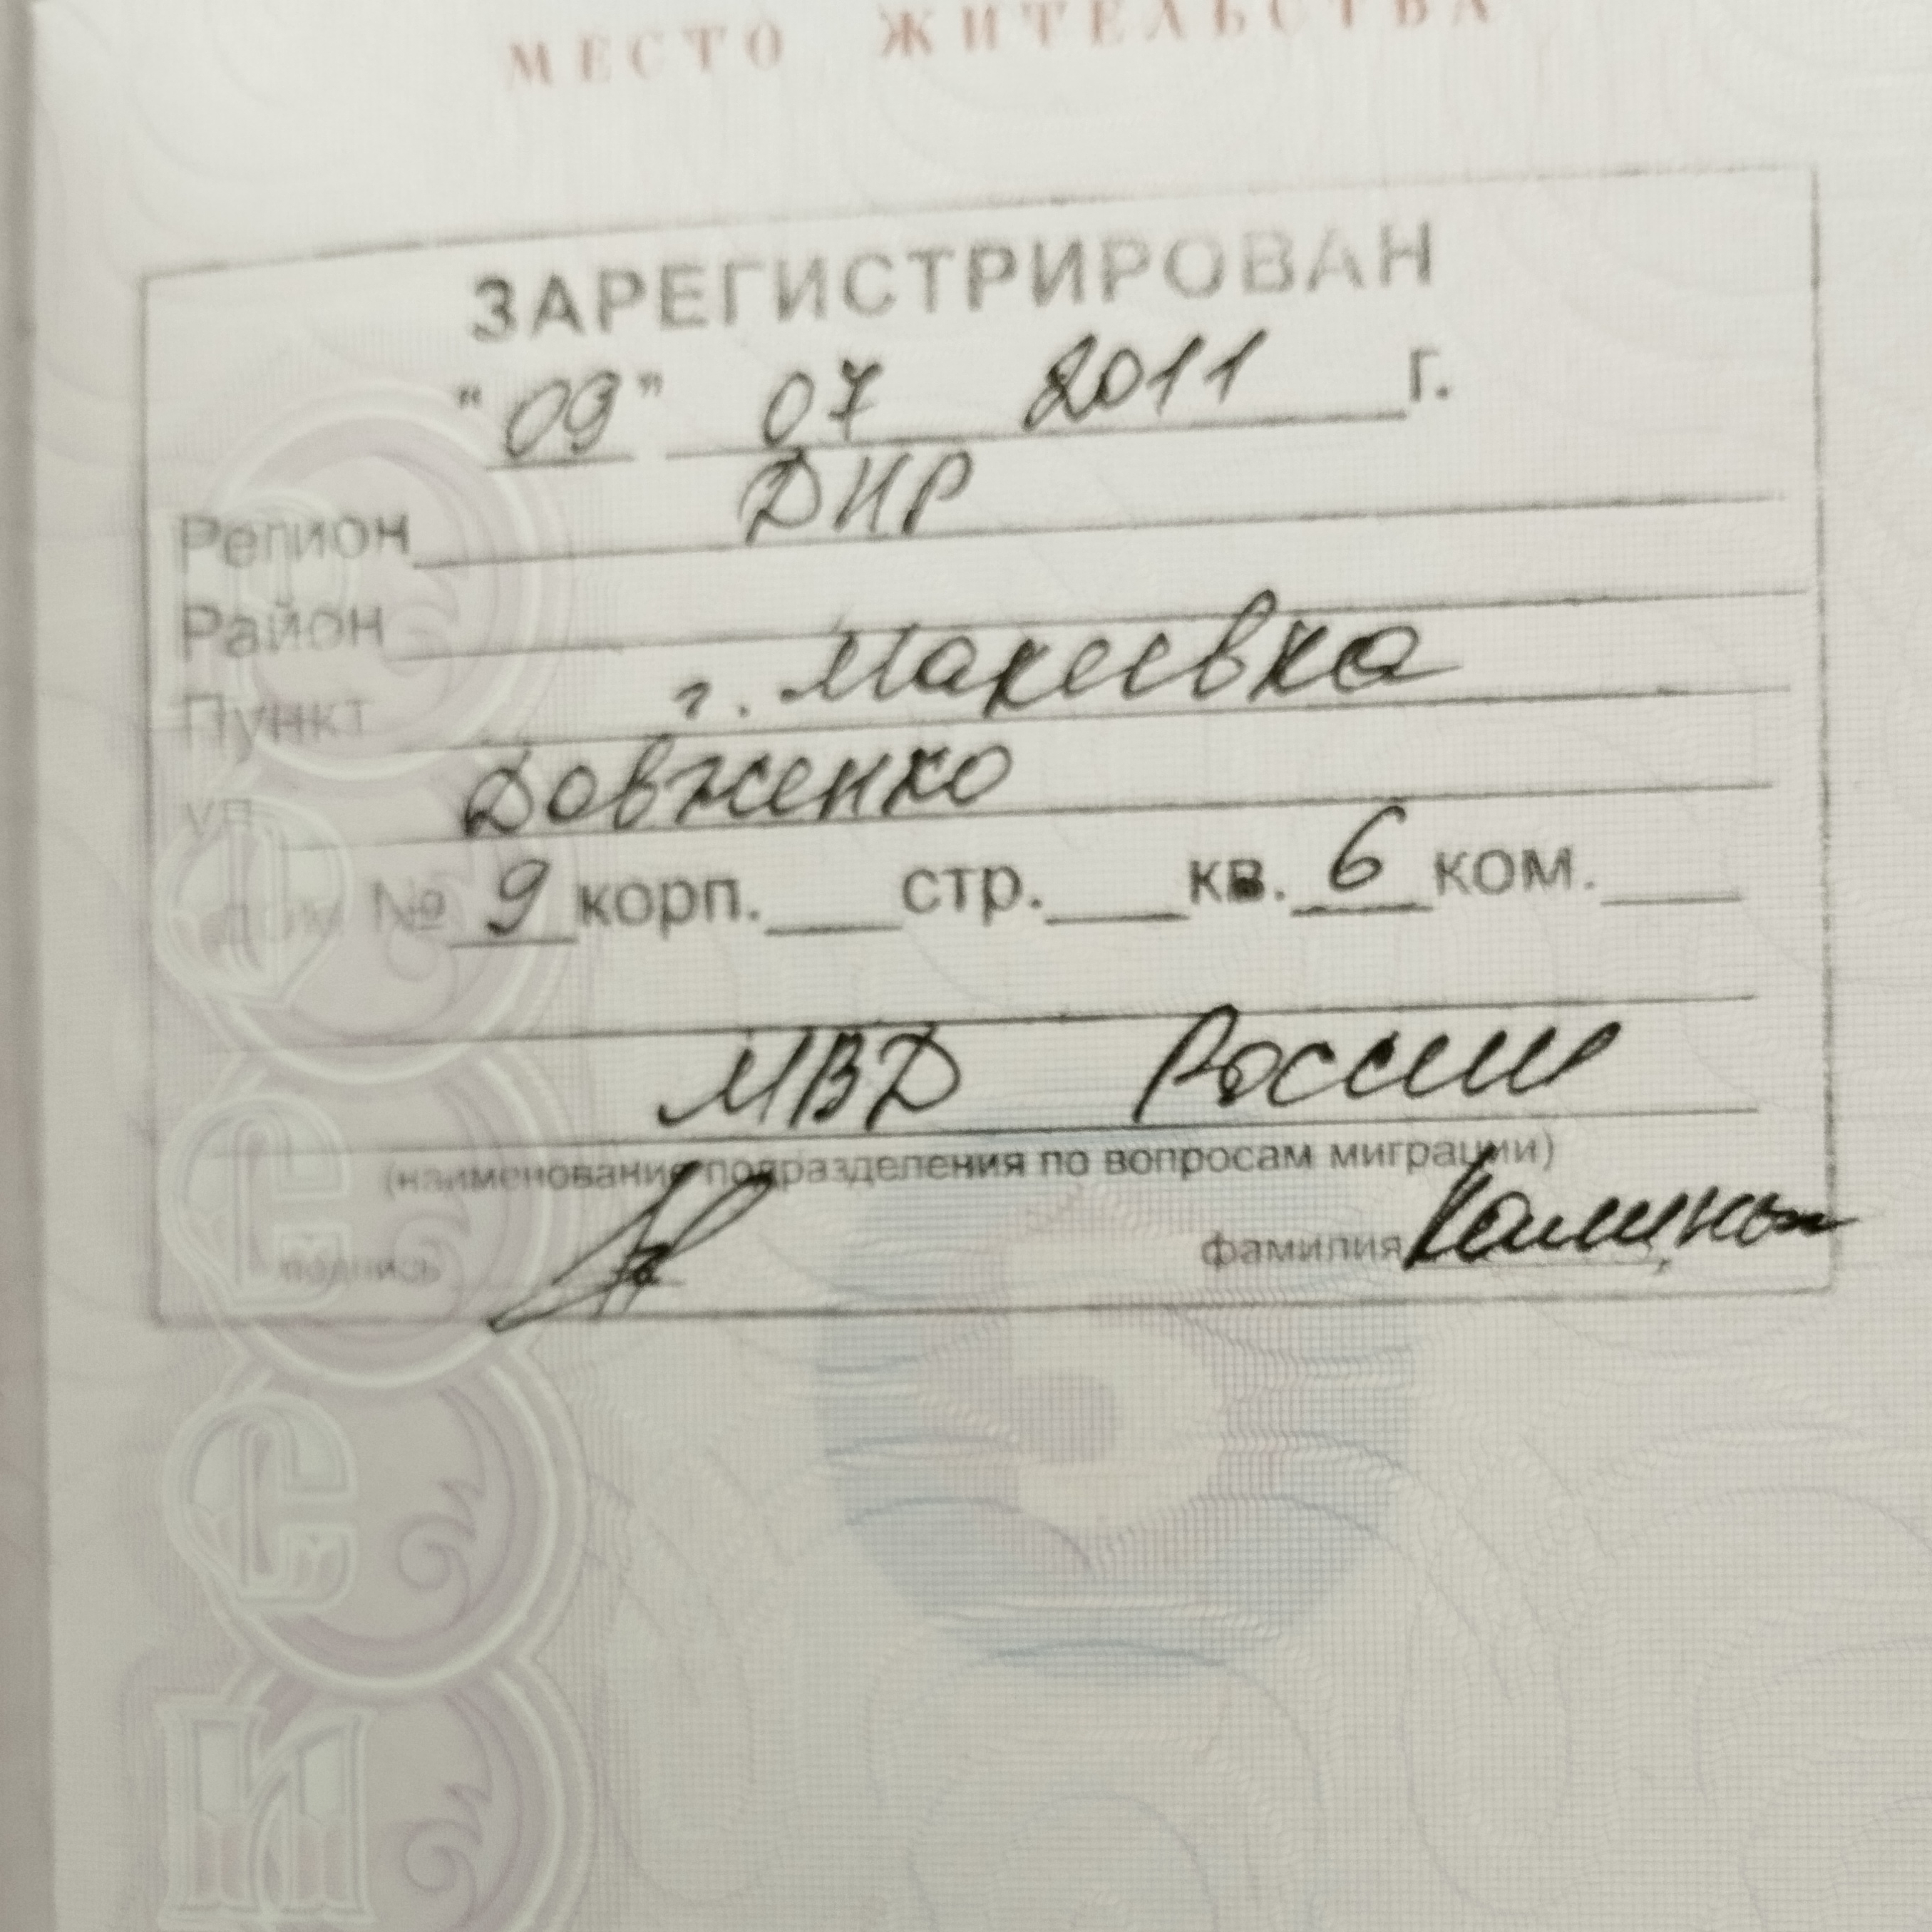 МЕСТО ЖИТЕЛЬСТВА
ЗАРЕГИСТРИРОВАН
"09" 07 2011 г.
Регион ДНР
Район
Пункт г. Макеевка
ул Довженко
дом № 9 корп.___стр.___кв. 6 ком.___
МВД России
(наименование подразделения по вопросам миграции)
подпись фамилия